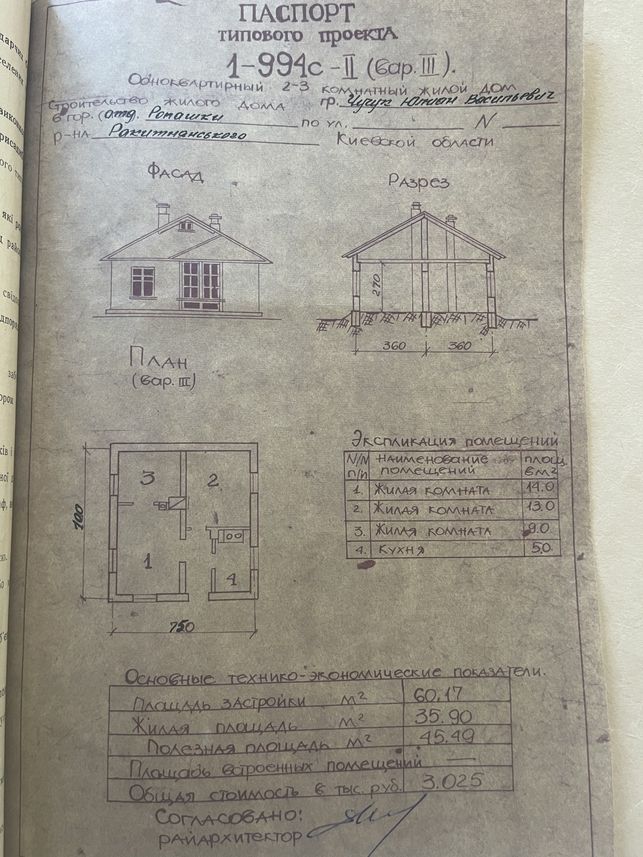 ПАСПОРТ
ТИПОВОГО ПРОЕКТА
1-994с-II (вар. III).
Одноквартирный 2-3 комнатный жилой дом
Строительство жилого дома гр. Чугук Васильевич
в гор. (отд. Ромашки по ул. N
р-на Ракитнанського Киевской области
ФАСАД
РАЗРЕЗ
270
360 360
ПЛАН
(вар. III)
3 2
1
4
700
750
Экспликация помещений
N/N п/п Наименование помещений площ. в м2
1. Жилая комната 14.0
2. Жилая комната 13.0
3. Жилая комната 9.0
4. Кухня 5.0
Основные технико-экономические показатели.
Площадь застройки м2 60.17
Жилая площадь м2 35.90
Полезная площадь м2 45.49
Площадь встроенных помещений —
Общая стоимость в тыс. руб. 3.025
СОГЛАСОВАНО:
РАЙАРХИТЕКТОР